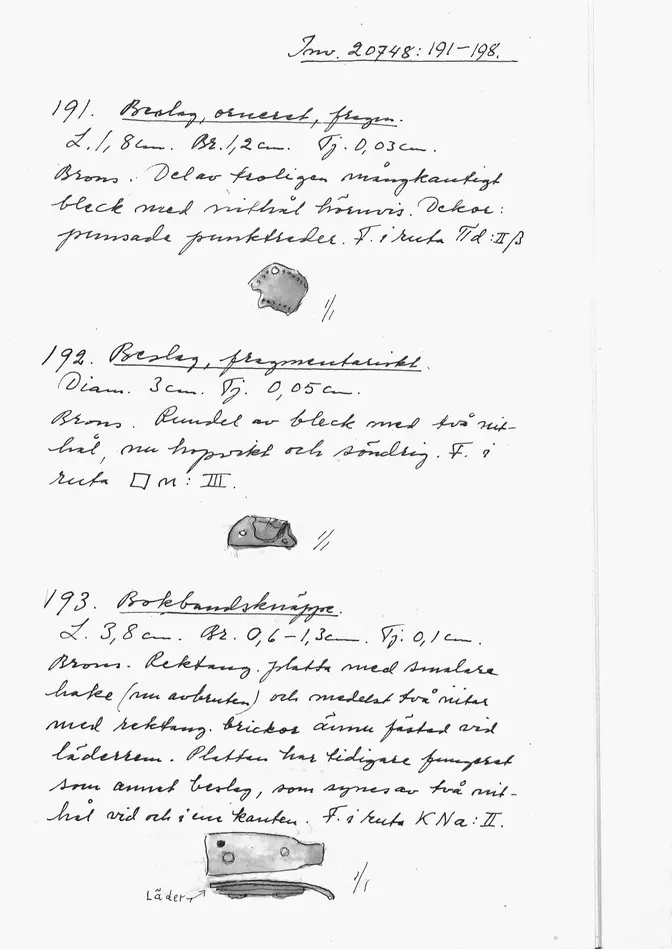 Inv. 20748:191-198.
191. Beslag, ornerat, fragm.
L. 1,8cm. Br. 1,2cm. Tj. 0,03cm.
Brons. Del av troligen mångkantigt
bleck med nithål hörnvis. Dekor:
punsade punktrader. F. i ruta Πd:IIβ
1/1
192. Beslag, fragmentariskt.
Diam. 3cm. Tj. 0,05cm.
Brons. Rundel av bleck med två nit-
hål, nu hopvikt och söndrig. F. i
ruta □ n: III.
1/1
193. Bokbandsknäppe.
L. 3,8cm. Br. 0,6-1,3cm. Tj. 0,1cm.
Brons. Rektang. platta med smalare
hake (nu avbruten) och medelst två nitar
med rektang. brickor ännu fästad vid
läderrem. Plattan har tidigare fungerat
som annat beslag, som synes av två nit-
hål vid och i ena kanten. F. i ruta K Na: II.
Läder
1/1